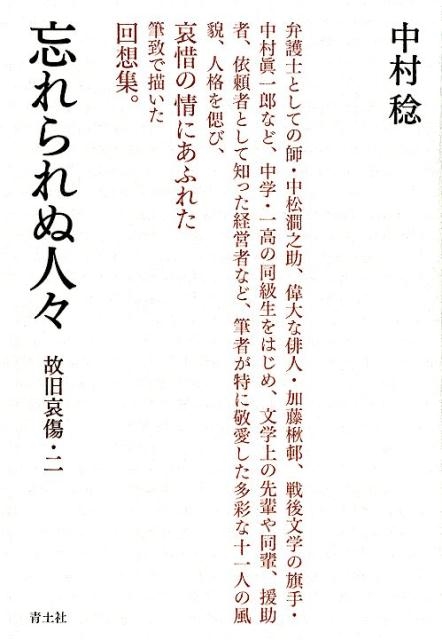 中村稔
弁護士としての師・中松澗之助、偉大な俳人・加藤楸邨、戦後文学の旗手・
中村眞一郎など、中学・一高の同級生をはじめ、文学上の先輩や同輩、援助
者、依頼者として知った経営者など、筆者が特に敬愛した多彩な十一人の風
貌、人格を偲び、
哀惜の情にあふれた
筆致で描いた
回想集。
忘れられぬ人々
故旧哀傷・二
青土社